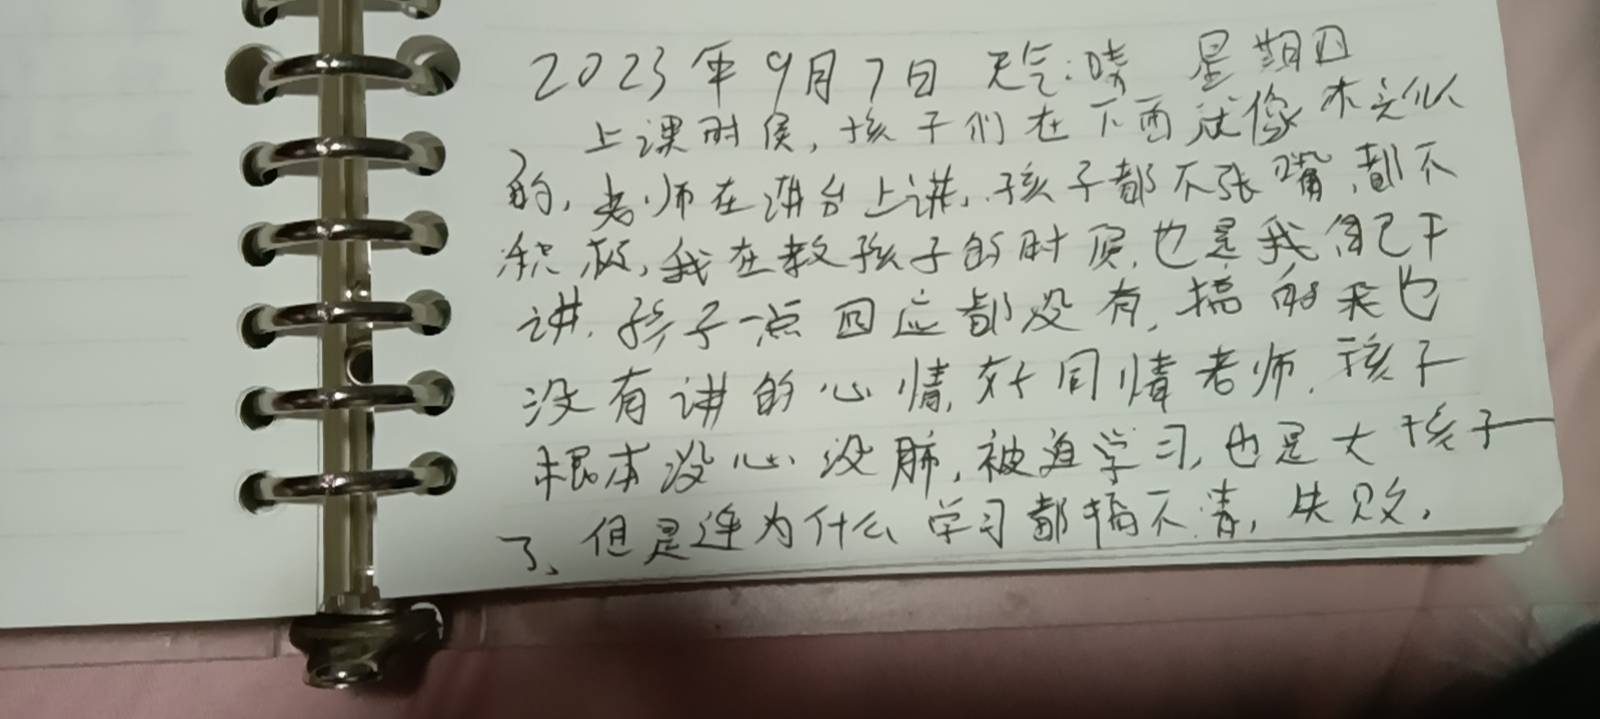 2023年9月7日 天气:晴 星期四
上课时候,孩子们在下面就像木头似
的,老师在讲台上讲,孩子都不张嘴,都不
积极,我在教孩子的时候,也是我自己干
讲,孩子一点回应都没有,搞的我也
没有讲的心情,好同情老师,孩子
根本没心没肺,被迫学习,也是大孩子
了,但是连为什么学习都搞不清,失败,